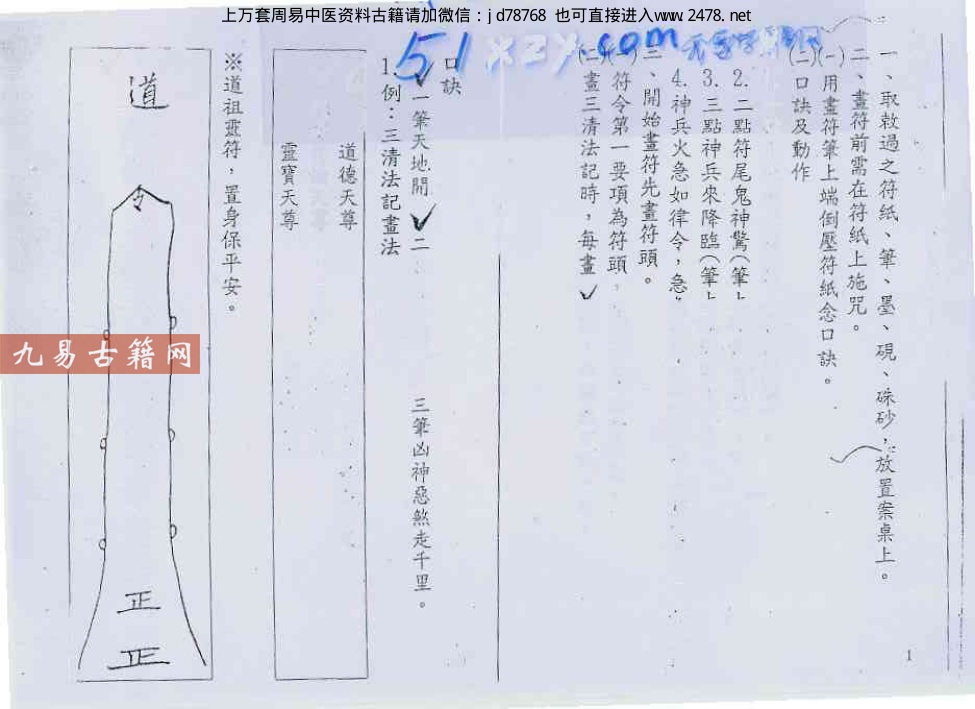 上万套周易中医资料古籍请加微信：jd78768 也可直接进入www.2478.net
51xzy.com
一、取敕過之符紙、筆、墨、硯、硃砂，放置案桌上。
二、畫符前需在符紙上施咒。
(一)用畫符筆上端倒壓符紙念口訣。
(二)口訣及動作
2.二點符尾鬼神驚(筆上
3.三點神兵來降臨(筆上
4.神兵火急如律令，急
三、開始畫符先畫符頭。
(一)符令第一要項為符頭
(二)畫三清法記時，每畫✓
口訣
✓一筆天地開 ✓二 三筆凶神惡煞走千里。
1.例：三清法記畫法
道德天尊
靈寶天尊
※道祖靈符，置身保平安。
道
令
正
正
九易古籍网
1